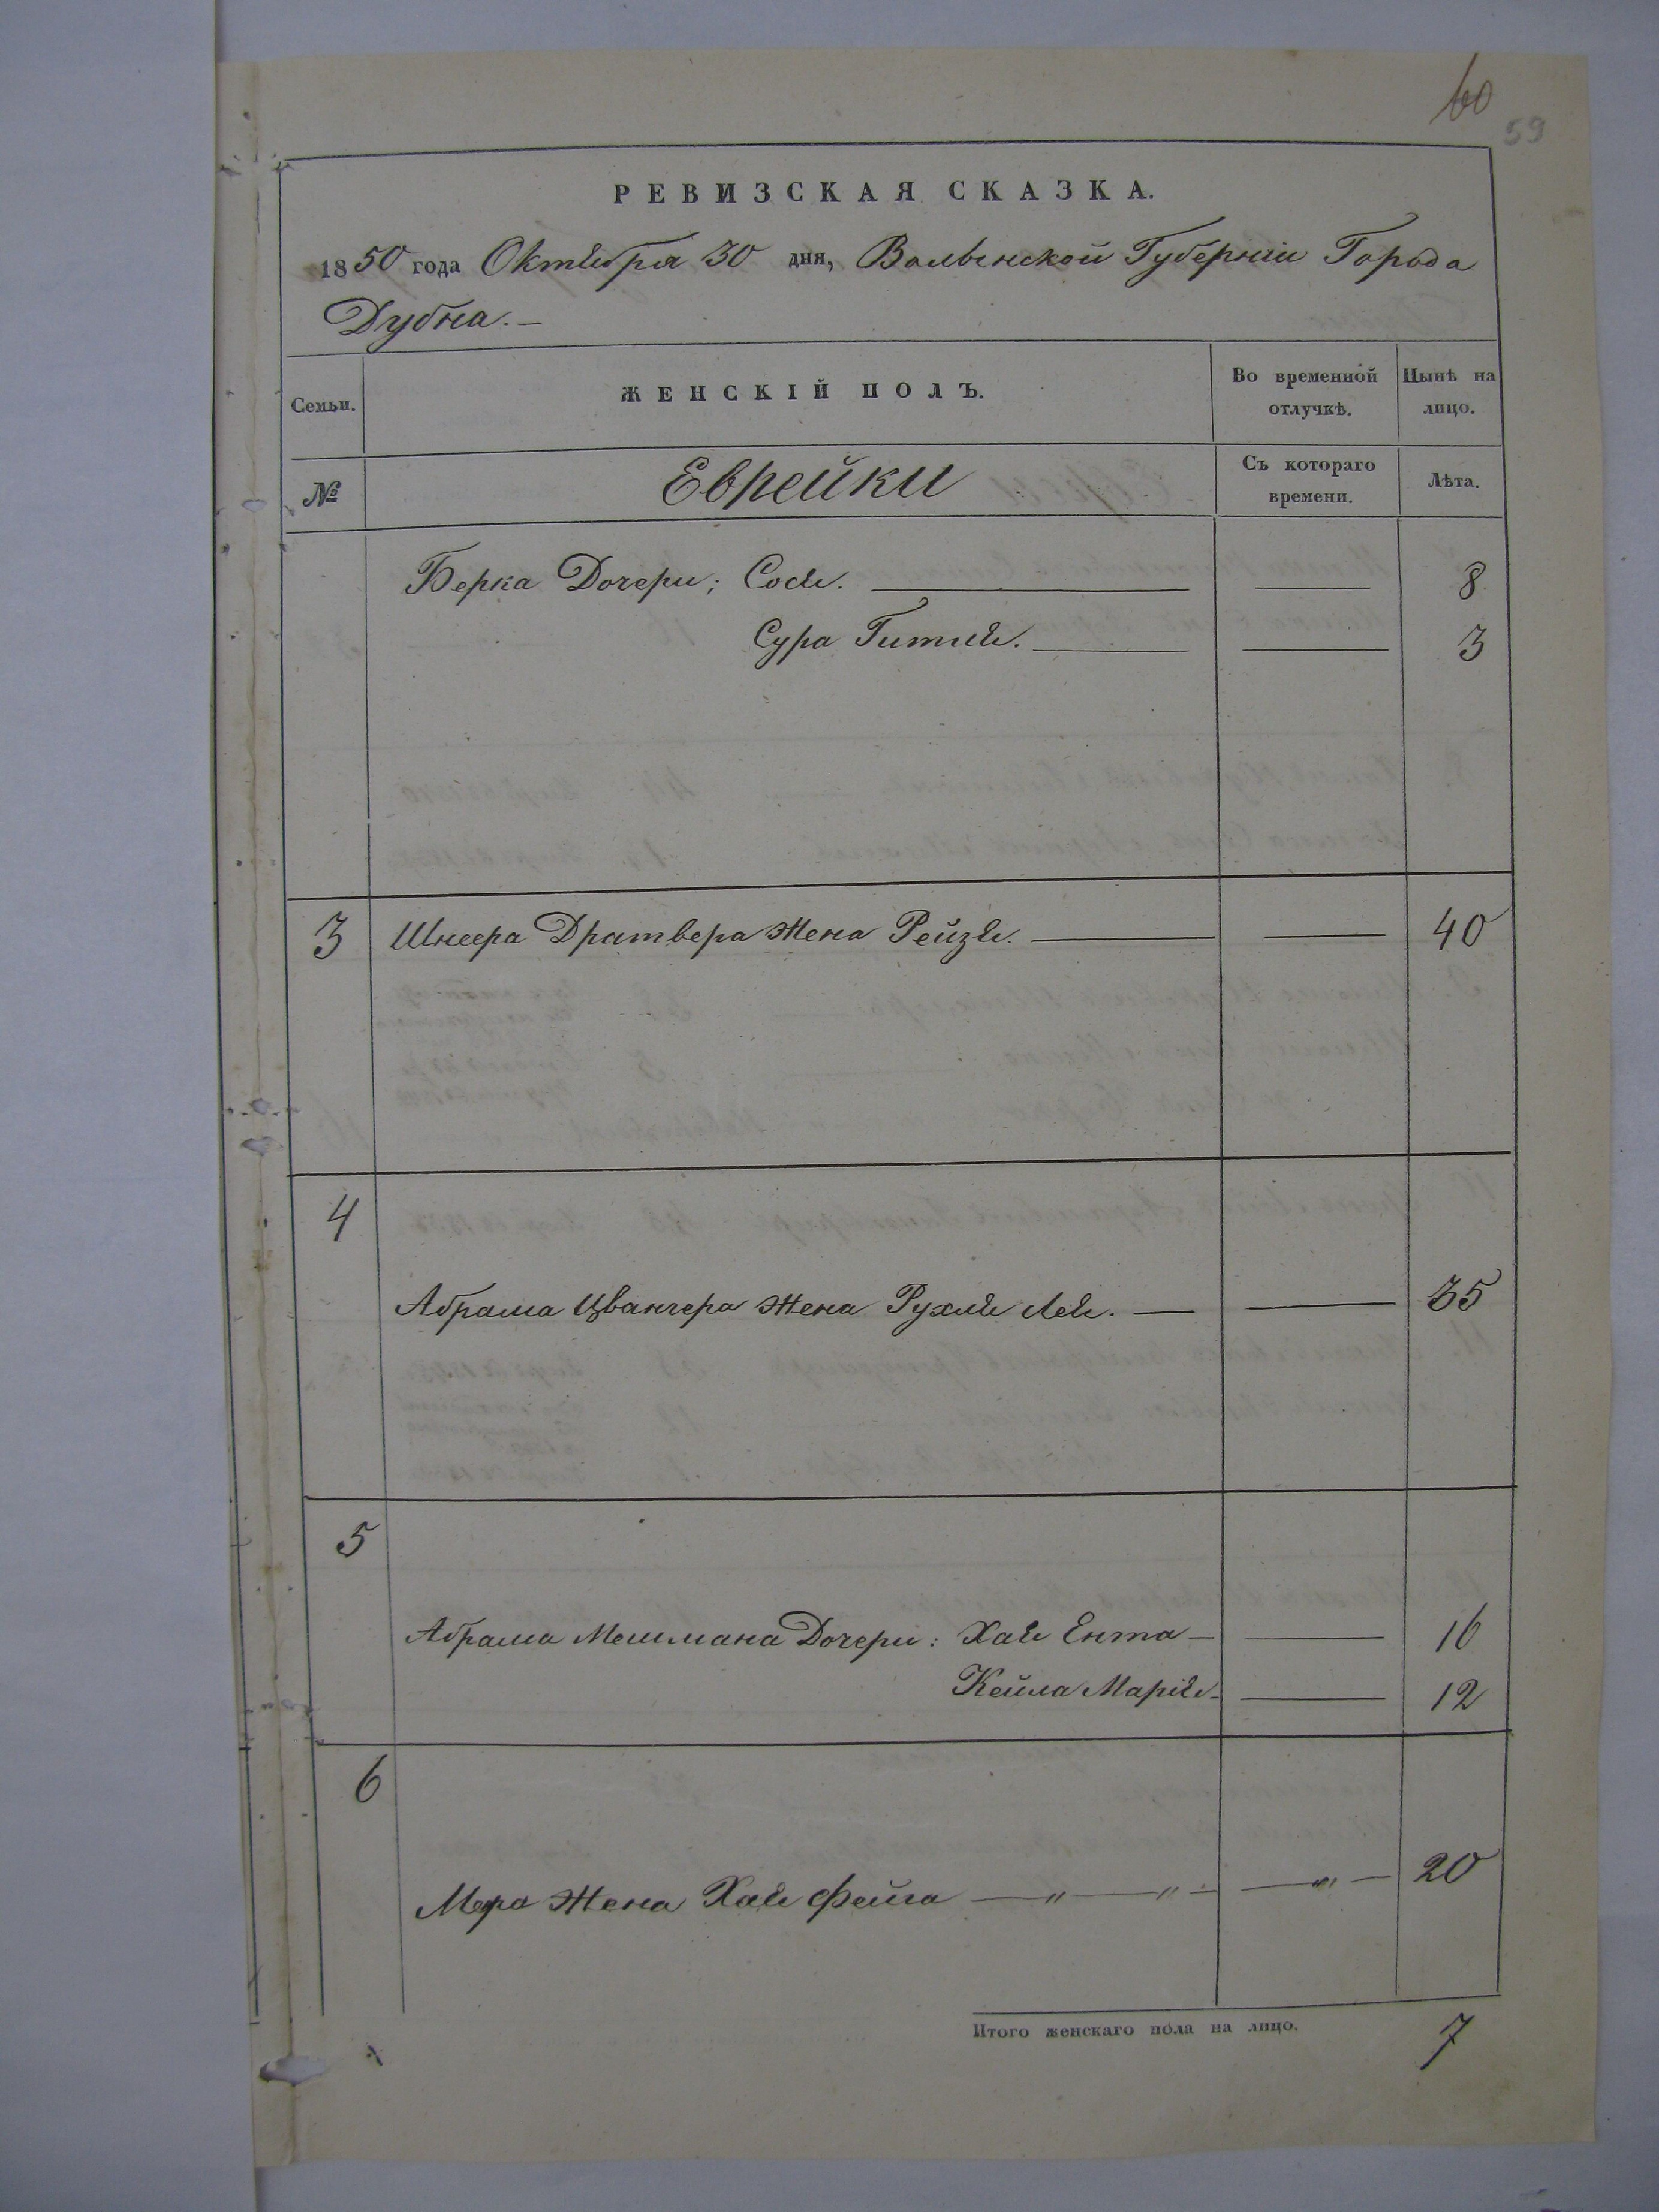 60
59
РЕВИЗСКАЯ СКАЗКА.
1850 года Октября 30 дня, Волынской Губерніи Города
Дубна.—
Семьи.
ЖЕНСКІЙ ПОЛЪ.
Во временной отлучкѣ.
Нынѣ на лицо.
№
Еврейки
Съ котораго времени.
Лѣта.
Берка Дочери; Сося. — — 8
Сура Гитля. — — 3
3 Шнеера Дратвера Жена Рейзя. — — 40
4
Абрама Цванчера Жена Рухля Лея. — — 35
5
Абрама Мешмана Дочери: Хая Ента — — 16
Кейла Марія — — 12
6
Жена Хая Фейга — „ — „ — — „ — 20
Итого женскаго пола на лицо. 7